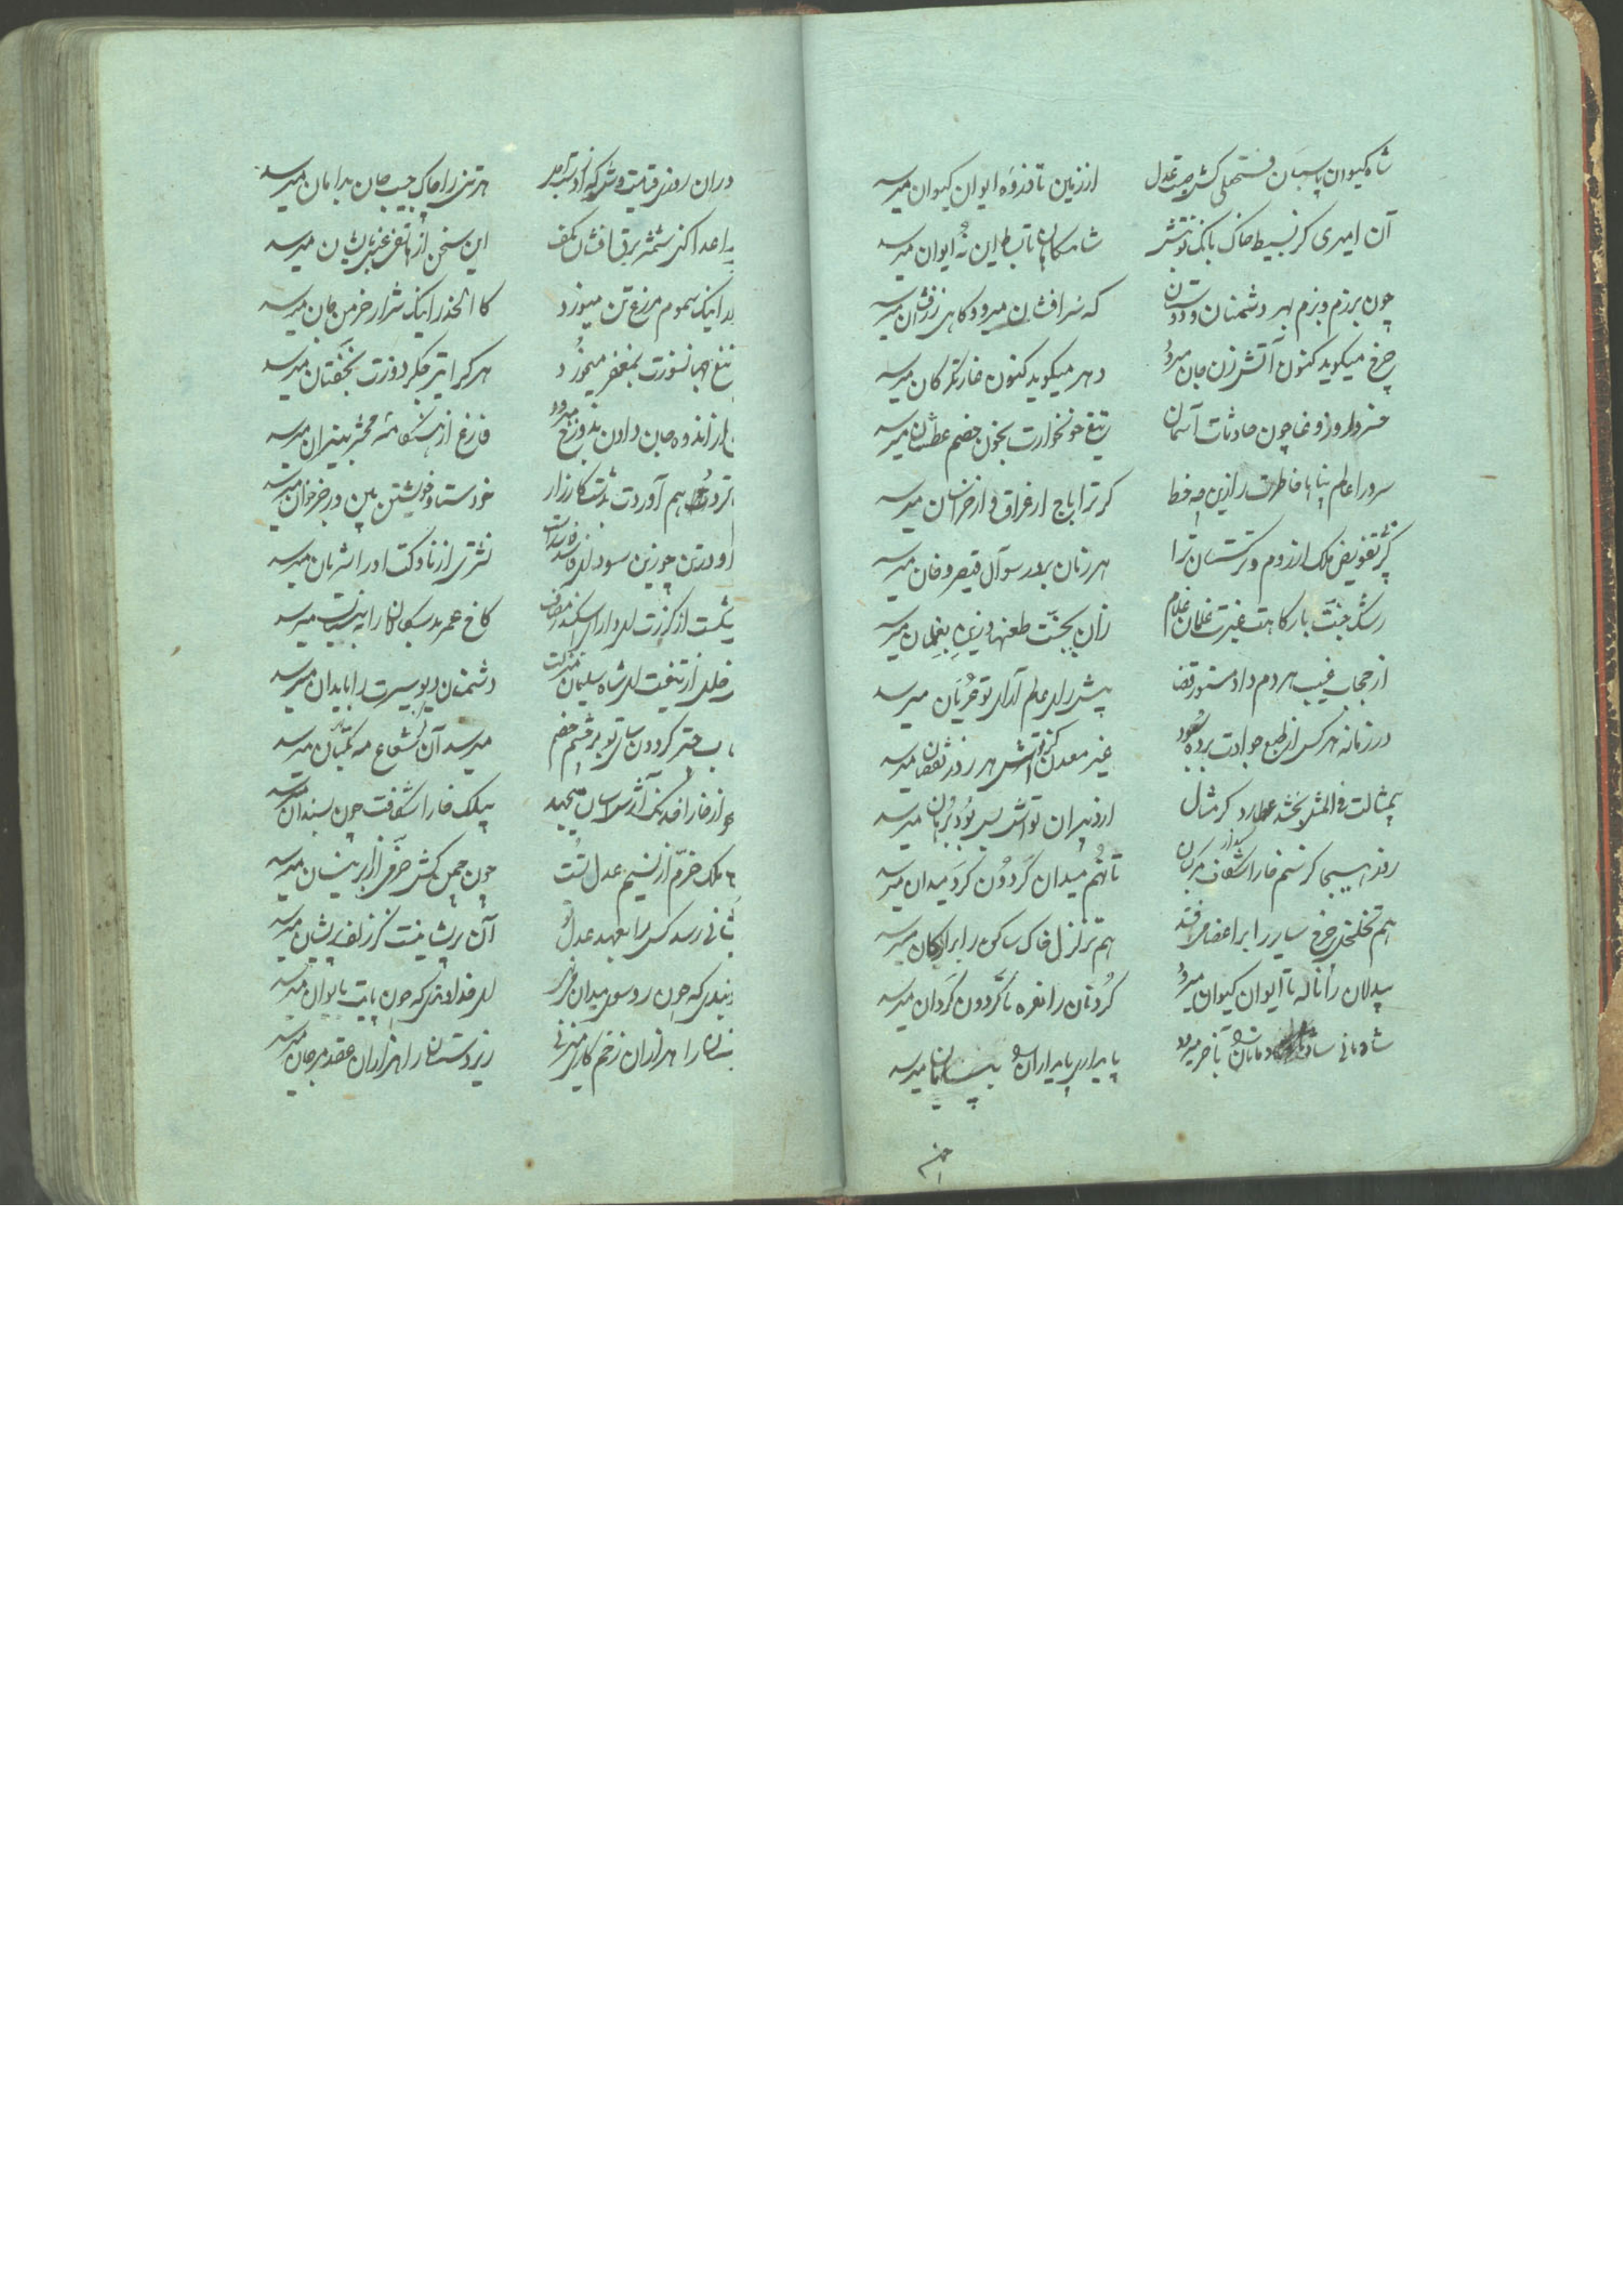 شاه کیوان پاسبان فتحعلی کش صیت عدل از زمین تا ذروه ایوان کیوان میرسد
آن امیری کز بسیط خاک بانک نوبتش شامکاهان تا بساط این نه ایوان میرسد
چون برزم و بزم بهر دشمنان و دوستان که سرافشان میرود کاهی زرافشان میرسد
چرخ میکوید کنون آتش زن جان میرود دهر میکوید کنون غارتکر کان میرسد
خسروا روز وغا چون حادثات آسمان تیغ خونخوارت بخون خصم عطشان میرسد
سرورا عالم پناها خاطرت را زین چه حظ کر ترا باج از عراق و از خراسان میرسد
کز تفویض ملک از روم و ترکستان ترا هر زمان بر در سوآل قیصر و خان میرسد
رشک جنت بارکاهت غیرت غلمان غلام زان بجنت طعنها وزین بغلمان میرسد
از حجاب غیب هر دم داد مستور قضا پیش رای عالم آرای تو عریان میرسد
در زمانه هر کس از طبع جوادت برده سود غیر معدن کز تواش هر روز نقصان میرسد
بمثالت فی المثل بخشد عطارد کر مثال از دبیران تواش بس بود برهان میرسد
روز هیجا کز سم خارا شکاف مرکبان تا نهم میدان کردون کرد میدان میرسد
هم تخلخل چرخ سایر را بر اعضا میرفتد هم تزلزل خاک ساکن را بر ارکان میرسد
بیدلان را ناله تا ایوان کیوان میرود کردنان را نعره تا کردون کردان میرسد
شادمانی شادمانان بآخر میرود پایداری پایداران به پایان میرسد
دران روزی قیامت وش که هر تنی را چاک جیب جان بدامان میرسد
اعدا کنی شمشیر برق افشان بکف این سخن از هاتف غیبی بایشان میرسد
اینک سموم مزرع تن میوزد کالحذر اینک شرار خرمن جان میرسد
تیغ جهانسوزت بمغفر میخورد هر کرا تیر جکردوزت بخفتان میرسد
از اندوه جان دادن بدوزخ میرود فارغ از هنکامه محشر بنیران میرسد
هم آوردت بدشت کارزار خود ستاد خویشتن بین ور خر خوان میرسد
او در تن چو زین سو نشتری از ناوکت او را شریان میرسد
شکست از کرزت ای دارای اسکندر مصاف کاخ عمر بدسکالان را به بنیان میرسد
خللی از تیغت ای شاه سلیمان منزلت دشمنان دیو سیرت را بابدان میرسد
چتر کردون سای تو بر چشم خصم میرسد آن کز شعاع مه بکتان میرسد
از خارا خدنک آنسان میجهد بیلک خارا شکافت چون بسندان میرسد
ملک خرم از نسیم عدل تست چون چمن کش خرمی از ابر نیسان میرسد
رسد کس را بعهد عدل تو آن پریشانیست کز زلف پریشان میرسد
که چون رو سوی میدان مینهد ای خداوندی که چون پایت بایوان میرسد
را هزاران زخم کاری میزنی زیردستان را هزاران عقد مرجان میرسد